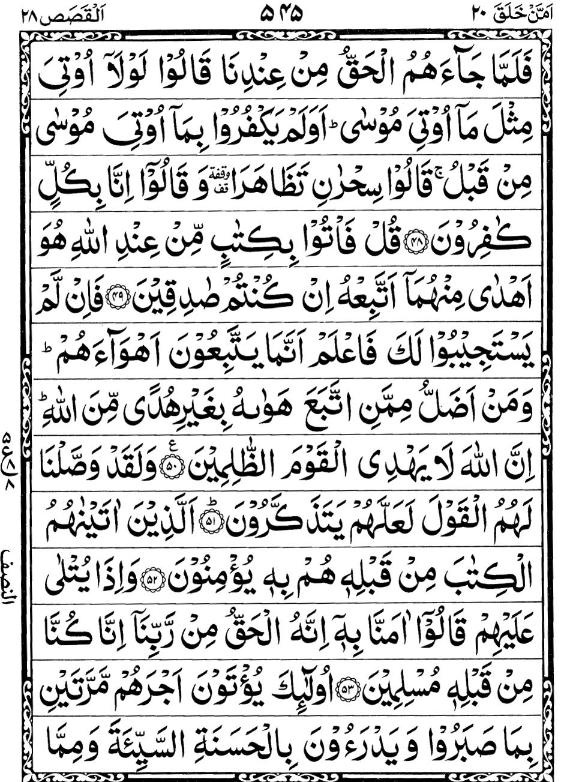 اَمَّنْ خَلَقَ ٢٠ ٥٤٥ اَلْقَصَص ٢٨
فَلَمَّا جَآءَهُمُ الْحَقُّ مِنْ عِنْدِنَا قَالُوْا لَوْلَآ اُوْتِیَ
مِثْلَ مَآ اُوْتِیَ مُوْسٰی ؕ اَوَلَمْ یَكْفُرُوْا بِمَاۤ اُوْتِیَ مُوْسٰی
مِنْ قَبْلُ ۚ قَالُوْا سِحْرٰنِ تَظَاهَرَا وقفة وَ قَالُوْۤا اِنَّا بِكُلٍّ
كٰفِرُوْنَ ﴿٤٨﴾ قُلْ فَاْتُوْا بِكِتٰبٍ مِّنْ عِنْدِ اللّٰهِ هُوَ
اَهْدٰی مِنْهُمَاۤ اَتَّبِعْهُ اِنْ كُنْتُمْ صٰدِقِیْنَ ﴿٤٩﴾ فَاِنْ لَّمْ
یَسْتَجِیْبُوْا لَكَ فَاعْلَمْ اَنَّمَا یَتَّبِعُوْنَ اَهْوَآءَهُمْ ؕ
وَمَنْ اَضَلُّ مِمَّنِ اتَّبَعَ هَوٰىهُ بِغَیْرِ هُدًی مِّنَ اللّٰهِ ؕ
اِنَّ اللّٰهَ لَا یَهْدِی الْقَوْمَ الظّٰلِمِیْنَ ﴿٥٠﴾ ع وَلَقَدْ وَصَّلْنَا
لَهُمُ الْقَوْلَ لَعَلَّهُمْ یَتَذَكَّرُوْنَ ﴿٥١﴾ ؕ اَلَّذِیْنَ اٰتَیْنٰهُمُ
الْكِتٰبَ مِنْ قَبْلِهٖ هُمْ بِهٖ یُؤْمِنُوْنَ ﴿٥٢﴾ وَاِذَا یُتْلٰی
عَلَیْهِمْ قَالُوْۤا اٰمَنَّا بِهٖۤ اِنَّهُ الْحَقُّ مِنْ رَّبِّنَاۤ اِنَّا كُنَّا
مِنْ قَبْلِهٖ مُسْلِمِیْنَ ﴿٥٣﴾ اُولٰٓىِٕكَ یُؤْتَوْنَ اَجْرَهُمْ مَّرَّتَیْنِ
بِمَا صَبَرُوْا وَ یَدْرَءُوْنَ بِالْحَسَنَةِ السَّیِّئَةَ وَمِمَّا
النصف